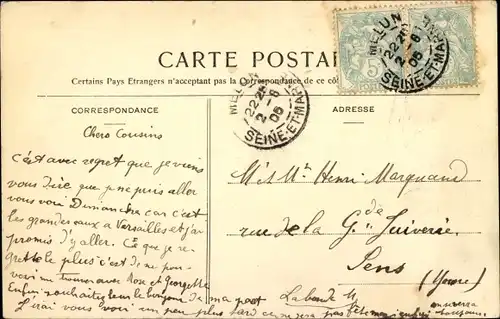 CARTE POSTALE
Certains Pays Etrangers n'acceptant pas la Correspondance de ce côté
CORRESPONDANCE
ADRESSE
MELUN
22 25
2 -6
05
SEINE-ET-MARNE
MELUN
22 25
2 -6
05
SEINE-ET-MARNE
5
Chers Cousins
c'est avec regret que je viens
vous dire que je ne puis aller
vous voir Dimanche car c'est
les grandes eaux a Versailles et j'ai
promis d'y aller. Ce que je re-
grette le plus c'est de ne pou-
voir me trouver avec Rose et
Enfin souhaitez leur le bonjour de ma part
J'irai vous voir un peu plus tard
Mr Henri Marquand
rue de la Gde Juiverie
Sens
(Yonne)